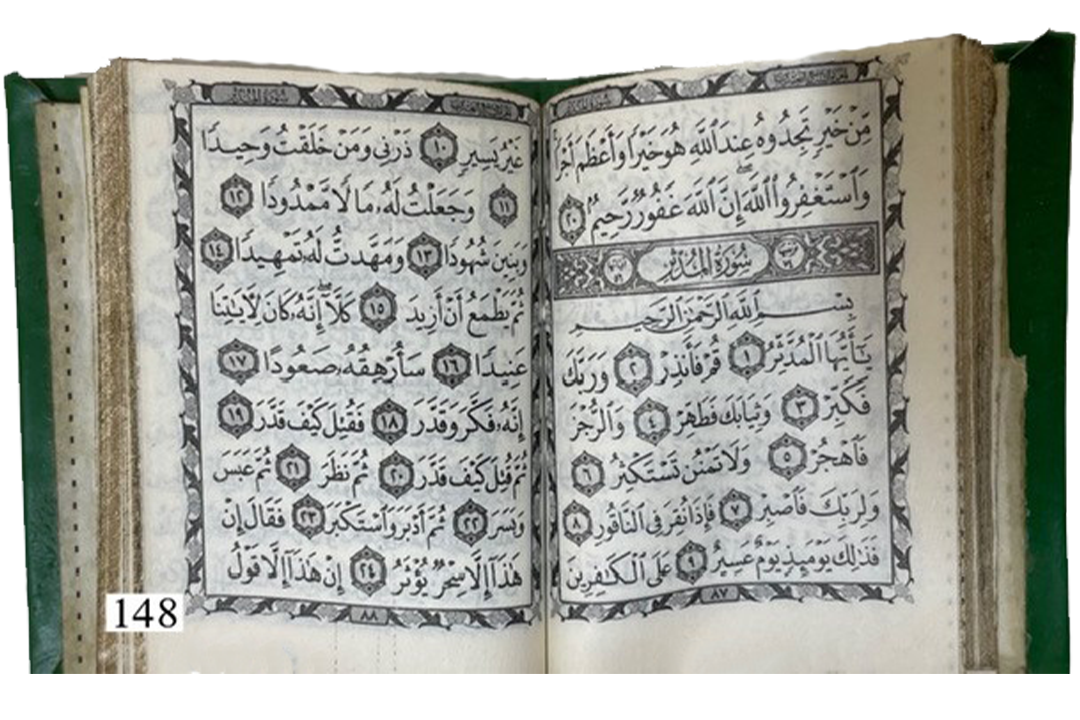 مِّنْ خَيْرٍ تَجِدُوهُ عِندَ ٱللَّهِ هُوَ خَيْرًا وَأَعْظَمَ أَجْرًا
وَٱسْتَغْفِرُوا۟ ٱللَّهَ ۖ إِنَّ ٱللَّهَ غَفُورٌ رَّحِيمٌ ٢٠
سُورَةُ المُدَّثِّر
بِسْمِ ٱللَّهِ ٱلرَّحْمَٰنِ ٱلرَّحِيمِ
يَٰٓأَيُّهَا ٱلْمُدَّثِّرُ ١ قُمْ فَأَنذِرْ ٢ وَرَبَّكَ
فَكَبِّرْ ٣ وَثِيَابَكَ فَطَهِّرْ ٤ وَٱلرُّجْزَ
فَٱهْجُرْ ٥ وَلَا تَمْنُن تَسْتَكْثِرُ ٦
وَلِرَبِّكَ فَٱصْبِرْ ٧ فَإِذَا نُقِرَ فِى ٱلنَّاقُورِ ٨
فَذَٰلِكَ يَوْمَئِذٍ يَوْمٌ عَسِيرٌ ٩ عَلَى ٱلْكَٰفِرِينَ
٨٧
غَيْرُ يَسِيرٍ ١٠ ذَرْنِى وَمَنْ خَلَقْتُ وَحِيدًا
١١ وَجَعَلْتُ لَهُۥ مَالًا مَّمْدُودًا ١٢
وَبَنِينَ شُهُودًا ١٣ وَمَهَّدتُّ لَهُۥ تَمْهِيدًا ١٤
ثُمَّ يَطْمَعُ أَنْ أَزِيدَ ١٥ كَلَّآ ۖ إِنَّهُۥ كَانَ لِءَايَٰتِنَا
عَنِيدًا ١٦ سَأُرْهِقُهُۥ صَعُودًا ١٧
إِنَّهُۥ فَكَّرَ وَقَدَّرَ ١٨ فَقُتِلَ كَيْفَ قَدَّرَ ١٩
ثُمَّ قُتِلَ كَيْفَ قَدَّرَ ٢٠ ثُمَّ نَظَرَ ٢١ ثُمَّ عَبَسَ
وَبَسَرَ ٢٢ ثُمَّ أَدْبَرَ وَٱسْتَكْبَرَ ٢٣ فَقَالَ إِنْ
هَٰذَآ إِلَّا سِحْرٌ يُؤْثَرُ ٢٤ إِنْ هَٰذَآ إِلَّا قَوْلُ
٨٨
148